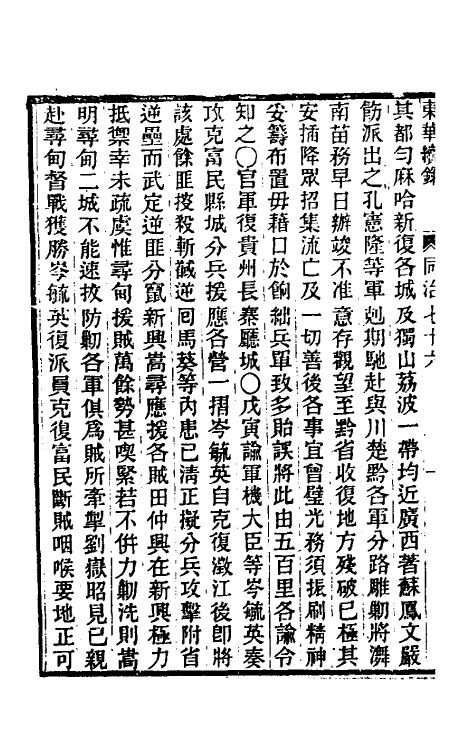 東華續錄　同治七十六
其都勻麻哈新復各城及獨山荔波一帶均近廣西著蘇鳳文嚴
飭派出之孔憲隆等軍剋期馳赴與川楚黔各軍分路雕勦將濟
南苗務早日辦竣不准意存觀望至黔省收復地方殘破已極其
安插降眾招集流亡及一切善後各事宜曾璧光務須振刷精神
妥籌布置毋藉口於餉絀兵單致多貽誤將此由五百里各諭令
知之〇官軍復貴州長寨廳城〇戊寅諭軍機大臣等岑毓英奏
攻克富民縣城分兵援應各營一摺岑毓英自克復澂江後卽將
該處餘匪搜殺斬馘逆囘馬葵等內患已清正擬分兵攻擊附省
逆壘而武定逆匪分竄新興嵩尋應援各賊田仲興在新興極力
抵禦幸未疏虞惟尋甸援賊萬餘勢甚喫緊若不併力勦洗則嵩
明尋甸二城不能速拔防勦各軍俱爲賊所牽掣劉嶽昭見已親
赴尋甸督戰獲勝岑毓英復派員克復富民斷賊咽喉要地正可